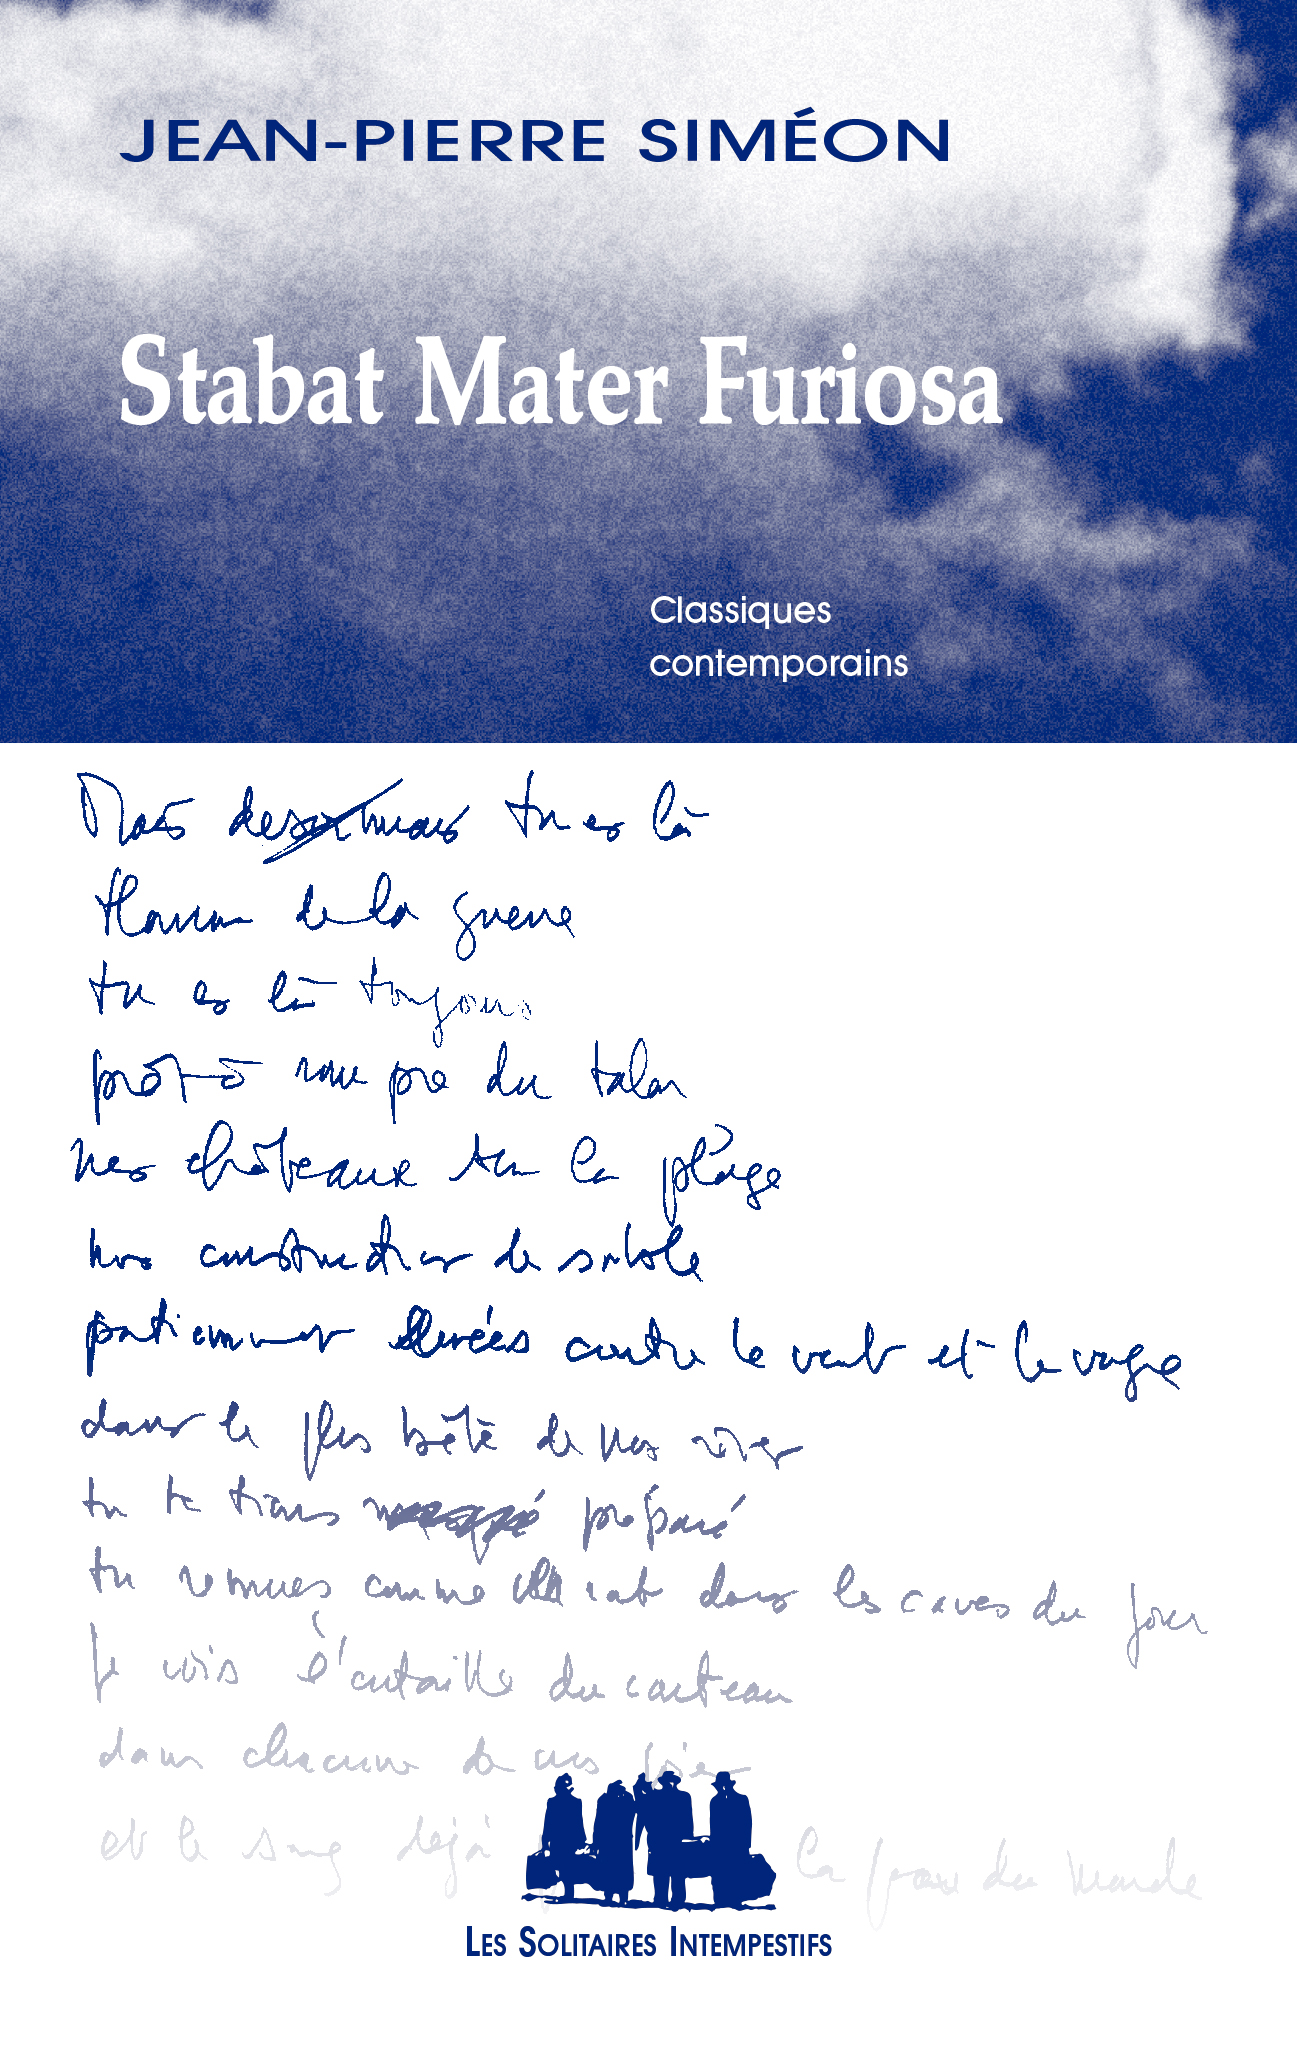 JEAN-PIERRE SIMÉON
Stabat Mater Furiosa
Classiques
contemporains
Mais désormais tu es là
Homme de la guerre
tu es là toujours
prêt à rompre du talon
nos châteaux sur la plage
nos constructions de sable
patiemment élevées contre le vent et la vague
dans le plus bête de nos rêves
tu te tiens préparé
tu remues comme un rat dans les caves du jour
je vois l'entaille du couteau
dans chacune de nos
et le sang déjà la peau du monde
LES SOLITAIRES INTEMPESTIFS